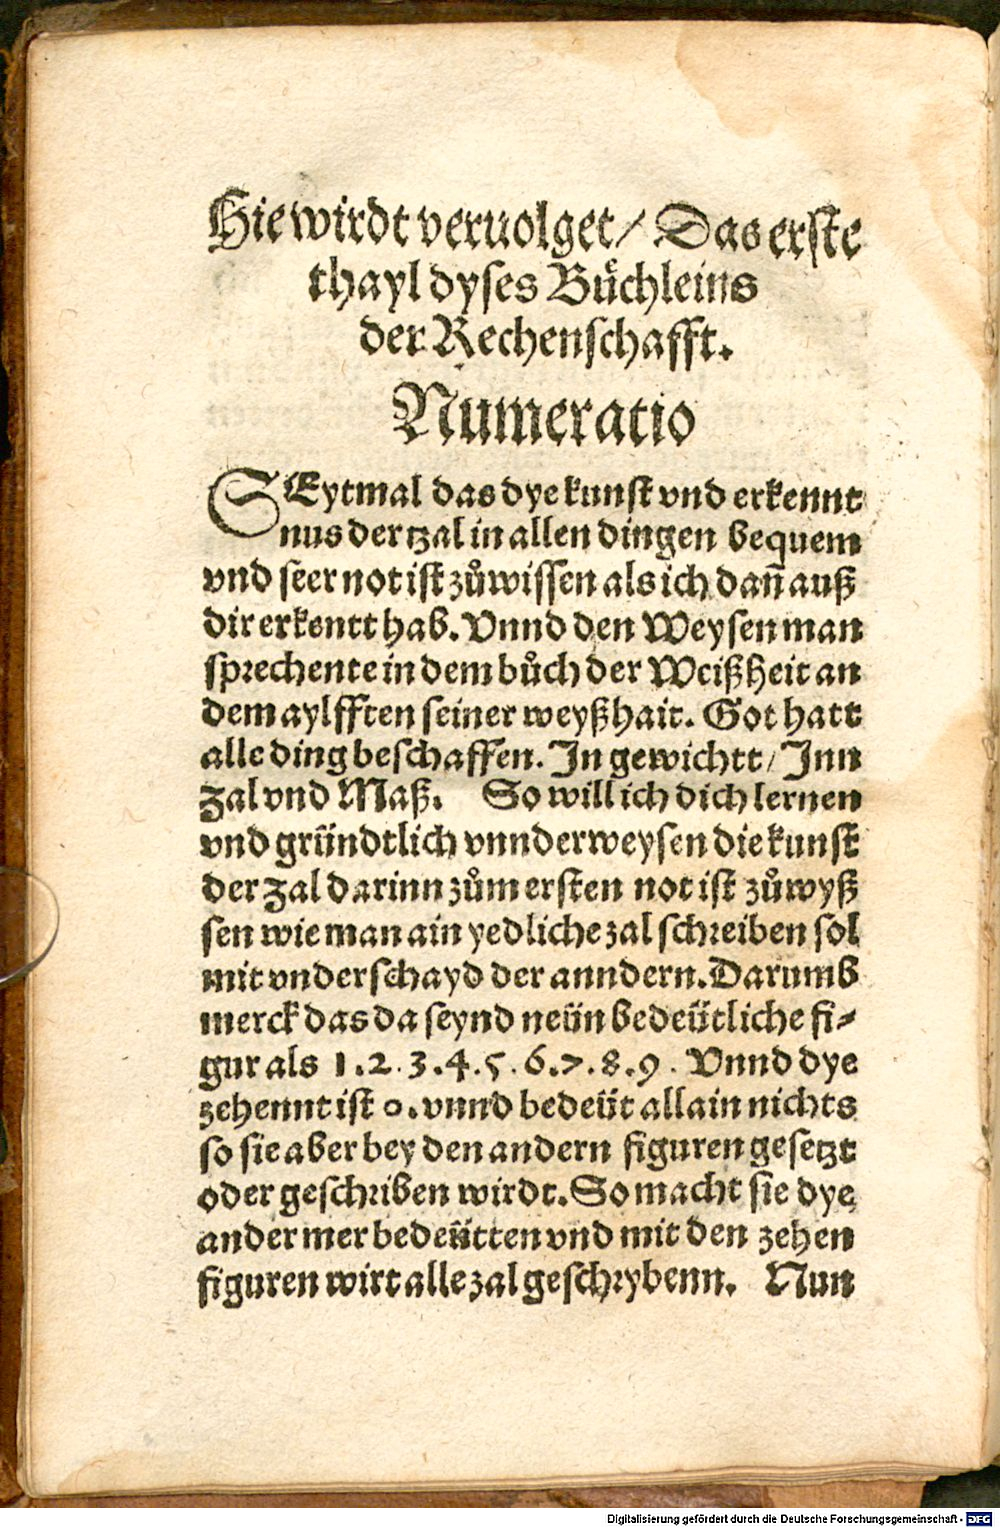 Hie wirdt veruolget / Das erste
thayl dyses Bůchleins
der Rechenschafft.
Numeratio
SEytmal das dye kunst vnd erkennt
nus der tzal in allen dingen bequem
vnd seer not ist zůwissen als ich dañ auß
dir erkentt hab. Vnnd den Weysen man
sprechente in dem bůch der Weißheit an
dem aylfften seiner weyßhait. Got hatt
alle ding beschaffen. In gewichtt / Inn
Zal vnd Maß. So will ich dich lernen
vnd gründtlich vnnderweysen die kunst
der Zal darinn zům ersten not ist zůwyß
sen wie man ain yedliche zal schreiben sol
mit vnderschayd der anndern. Darumb
merck das da seynd neün bedeütliche fi⸗
gur als 1.2.3.4.5.6.7.8.9. Vnnd dye
zehennt ist 0. vnnd bedeüt allain nichts
so sie aber bey den andern figuren gesetzt
oder geschriben wirdt. So macht sie dye
ander mer bedeütten vnd mit den zehen
figuren wirt alle zal geschrybenn. Nun
Digitalisierung gefördert durch die Deutsche Forschungsgemeinschaft - DFG